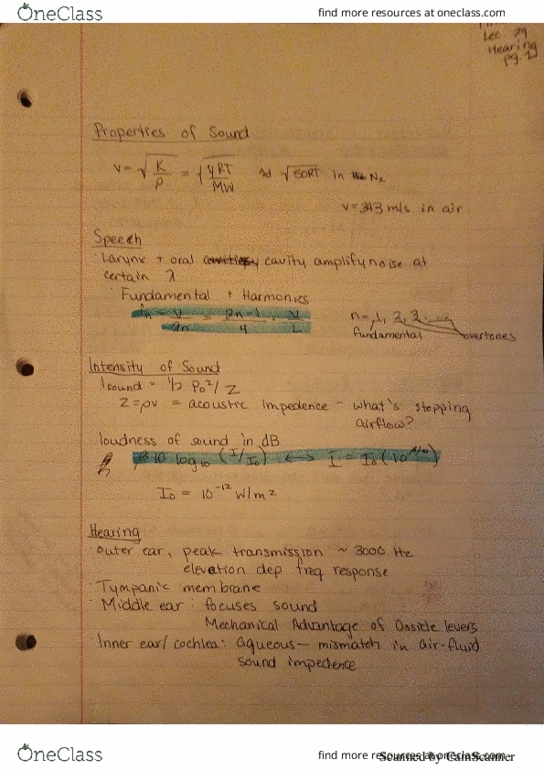 OneClass
find more resources at oneclass.com
Lec. 29
Hearing
pg. 1
Properties of Sound
v = √K/ρ = √γRT/MW √50RT in N₂
v = 343 m/s in air
Speech
Larynx + oral cavity amplify noise at
certain λ
Fundamental + Harmonics
fn = v/λn = 2n-1/4 · v/L n = 1, 2, 3...
fundamental overtones
Intensity of Sound
Isound = 1/2 P₀²/Z
Z = ρv = acoustic impedence - what's stopping
airflow?
loudness of sound in dB
β 10 log₁₀ (I/I₀) ←→ I = I₀ (10^β/10)
I₀ = 10⁻¹² W/m²
Hearing
outer ear, peak transmission ~ 3000 Hz
elevation dep freq response
Tympanic membrane
Middle ear: focuses sound
Mechanical Advantage of Ossicle levers
Inner ear/cochlea: aqueous - mismatch in air-fluid
sound impedence
OneClass
find more resources at oneclass.com
Scanned by CamScanner